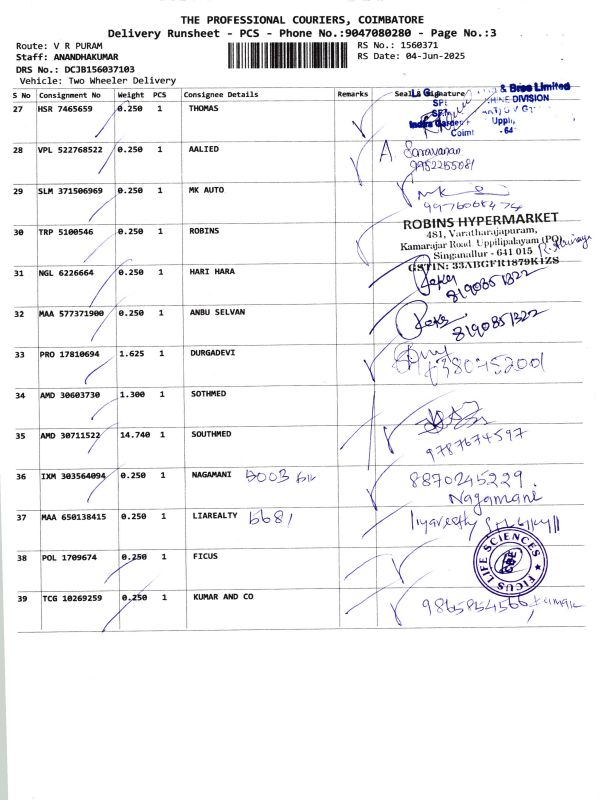 THE PROFESSIONAL COURIERS, COIMBATORE
Delivery Runsheet - PCS - Phone No.:9047080280 - Page No.:3
Route: V R PURAM
RS No.: 1560371
Staff: ANANDHAKUMAR
RS Date: 04-Jun-2025
DRS No.: DCJB156037103
Vehicle: Two Wheeler Delivery
S No Consignment No Weight PCS Consignee Details Remarks Seal & Signature
27 HSR 7465659 0.250 1 THOMAS
& Bros Limited
DIVISION
28 VPL 522768522 0.250 1 AALIED
A Saravanan
9952255081
29 SLM 371506969 0.250 1 MK AUTO
30 TRP 5100546 0.250 1 ROBINS
ROBINS HYPERMARKET
481, Varatharajapuram,
Kamarajar Road, Uppilipalayam (PO)
Singanallur - 641 015
GSTIN: 33ABGFR1879K1ZS
31 NGL 6226664 0.250 1 HARI HARA
8190851322
32 MAA 577371900 0.250 1 ANBU SELVAN
8190851322
33 PRO 17810694 1.625 1 DURGADEVI
34 AMD 30603730 1.300 1 SOTHMED
35 AMD 30711522 14.740 1 SOUTHMED
9787674597
36 IXM 303564094 0.250 1 NAGAMANI
8870245229
Nagamani
37 MAA 650138415 0.250 1 LIAREALTY
38 POL 1709674 0.250 1 FICUS
FICUS LIFE SCIENCES
39 TCG 10269259 0.250 1 KUMAR AND CO
9865854566